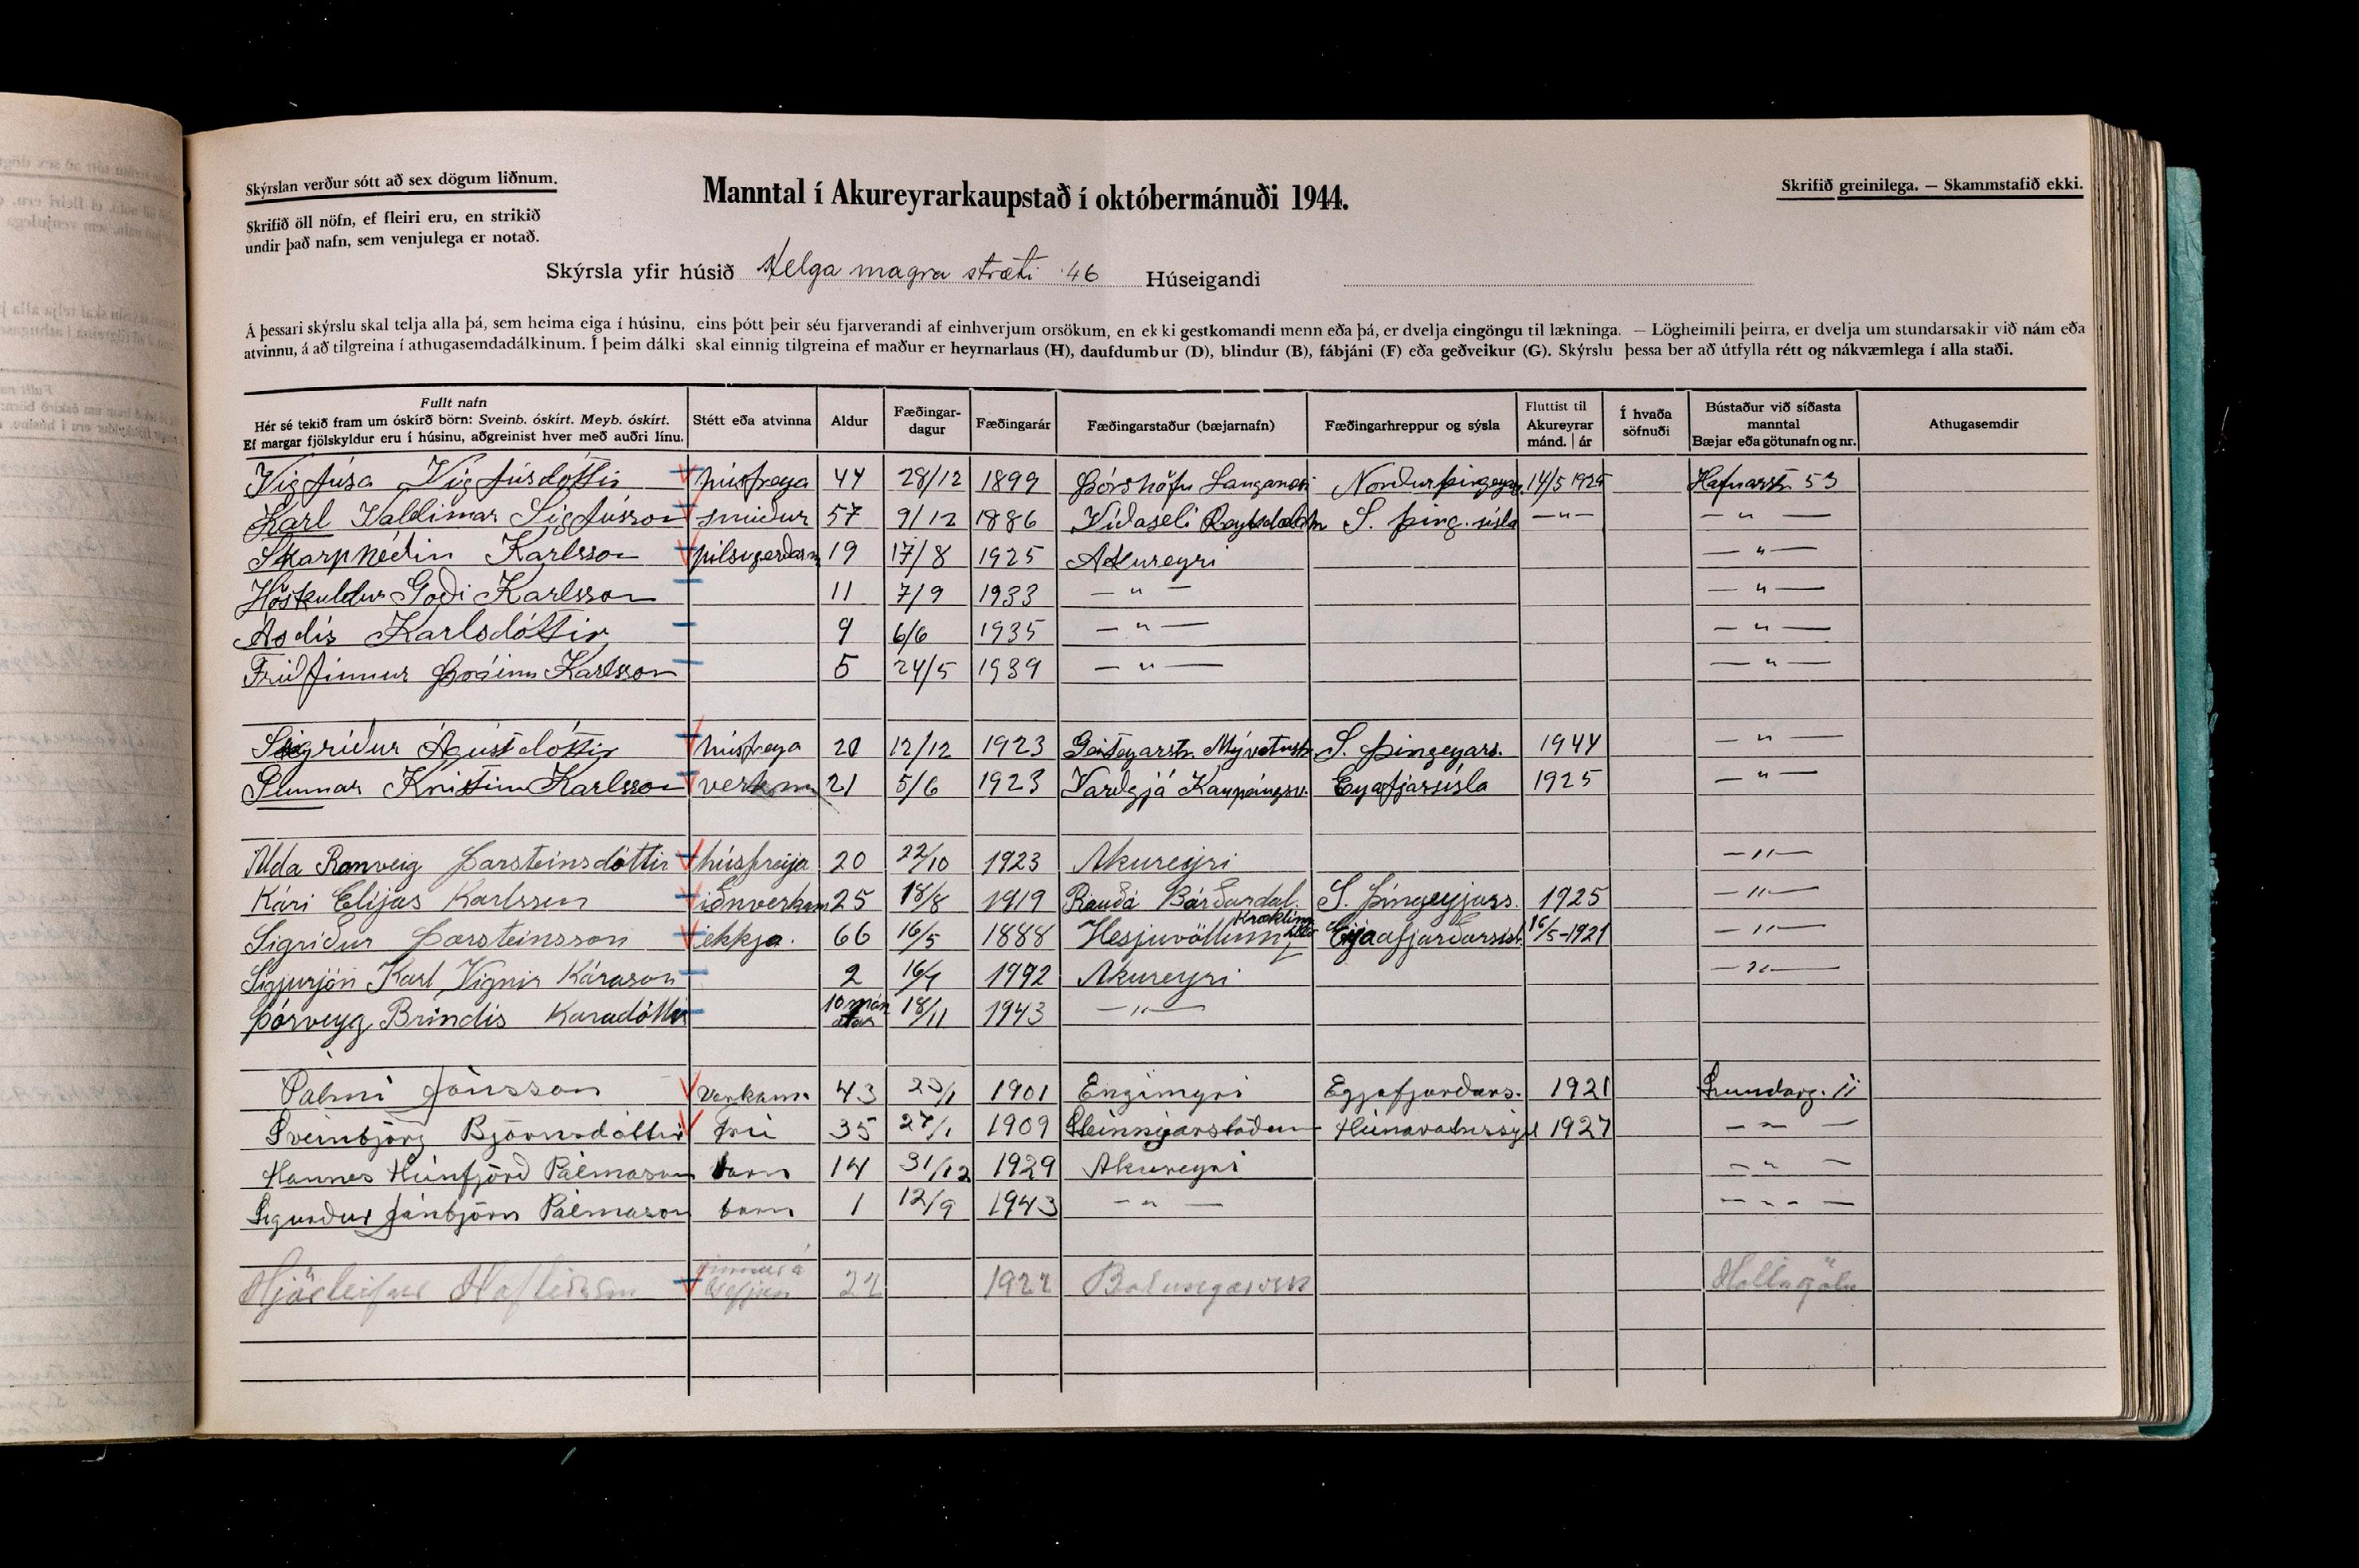 Skýrslan verður sótt að sex dögum liðnum.
Manntal í Akureyrarkaupstað í októbermánuði 1944.
Skrifið greinilega. — Skammstafið ekki.
Skrifið öll nöfn, ef fleiri eru, en strikið
undir það nafn, sem venjulega er notað.
Skýrsla yfir húsið Helga magra stræti 46 Húseigandi
Á þessari skýrslu skal telja alla þá, sem heima eiga í húsinu, eins þótt þeir séu fjarverandi af einhverjum orsökum, en ekki gestkomandi menn eða þá, er dvelja eingöngu til lækninga. — Lögheimili þeirra, er dvelja um stundarsakir við nám eða
atvinnu, á að tilgreina í athugasemdadálkinum. Í þeim dálki skal einnig tilgreina ef maður er heyrnarlaus (H), daufdumbur (D), blindur (B), fábjáni (F) eða geðveikur (G). Skýrslu þessa ber að útfylla rétt og nákvæmlega í alla staði.
Fullt nafn
Hér sé tekið fram um óskírð börn: Sveinb. óskírt. Meyb. óskírt.
Ef margar fjölskyldur eru í húsinu, aðgreinist hver með auðri línu.
Stétt eða atvinna
Aldur
Fæðingar-
dagur
Fæðingarár
Fæðingarstaður (bæjarnafn)
Fæðingarhreppur og sýsla
Fluttist til
Akureyrar
mánd. | ár
Í hvaða
söfnuði
Bústaður við síðasta
manntal
Bæjar eða götunafn og nr.
Athugasemdir
Vigfúsa Vigfúsdóttir húsfreya 44 28/12 1899 Þórshöfn Langanesi Norðurþingeyar. 14/5 1925 Hafnarstr. 53
Karl Valdimar Sigfússon smiður 57 9/12 1886 Víðaseli Reykdælahr S. þing. sísla — " — — " —
Skarphéðin Karlsson pilsugerðarm 19 17/8 1925 Akureyri — " —
Höskuldur Goði Karlsson 11 7/9 1933 — " — — " —
Ásdís Karlsdóttir 9 6/6 1935 — " — — " —
Friðfinnur Þráinn Karlsson 5 24/5 1939 — " — — " —
Sigríður Ágústdóttir húsfreya 20 12/12 1923 Geitegarstr. Mývatnsh. S. Þingeyars. 1944 — " —
Gunnar Kristinn Karlsson verkam 21 5/6 1923 Varðgjá Kaupángsv. Eyafjarsísla 1925 — " —
Alda Ranveig Þorsteinsdóttir húsfreija 20 22/10 1923 Akureyri — " —
Kári Elijas Karlsson iðnverkam 25 18/8 1919 Rauðá Bárðardal. S. Þingeyjars. 1925 — " —
Sigríður Þorsteinsson ekkja. 66 16/5 1888 Hesjuvöllum Kræklingahlíð Eijaafjarðarsísl. 16/5-1921 — " —
Sigurjón Karl Vignir Kárason 2 16/9 1942 Akureyri — " —
Þórveyg Brindis Karadóttir 10 mán aðar 18/11 1943 — " —
Pálmi Jónsson verkam. 43 23/1 1901 Engimyri Eyjafjarðars. 1921 Lundarg. 11
Sveinbjörg Björnsdóttir frú 35 27/1 1909 Steinnýarstöðum Húnavatnssýsl 1927 — " —
Hannes Húnfjörð Pálmason barn 14 31/12 1929 Akureyri — " —
Sigurður Jónbjörn Pálmason barn 1 12/9 1943 — " — — " —
Hjörleifur Hafliðason vinnur á Gefjun 22 1922 Bolungarvík